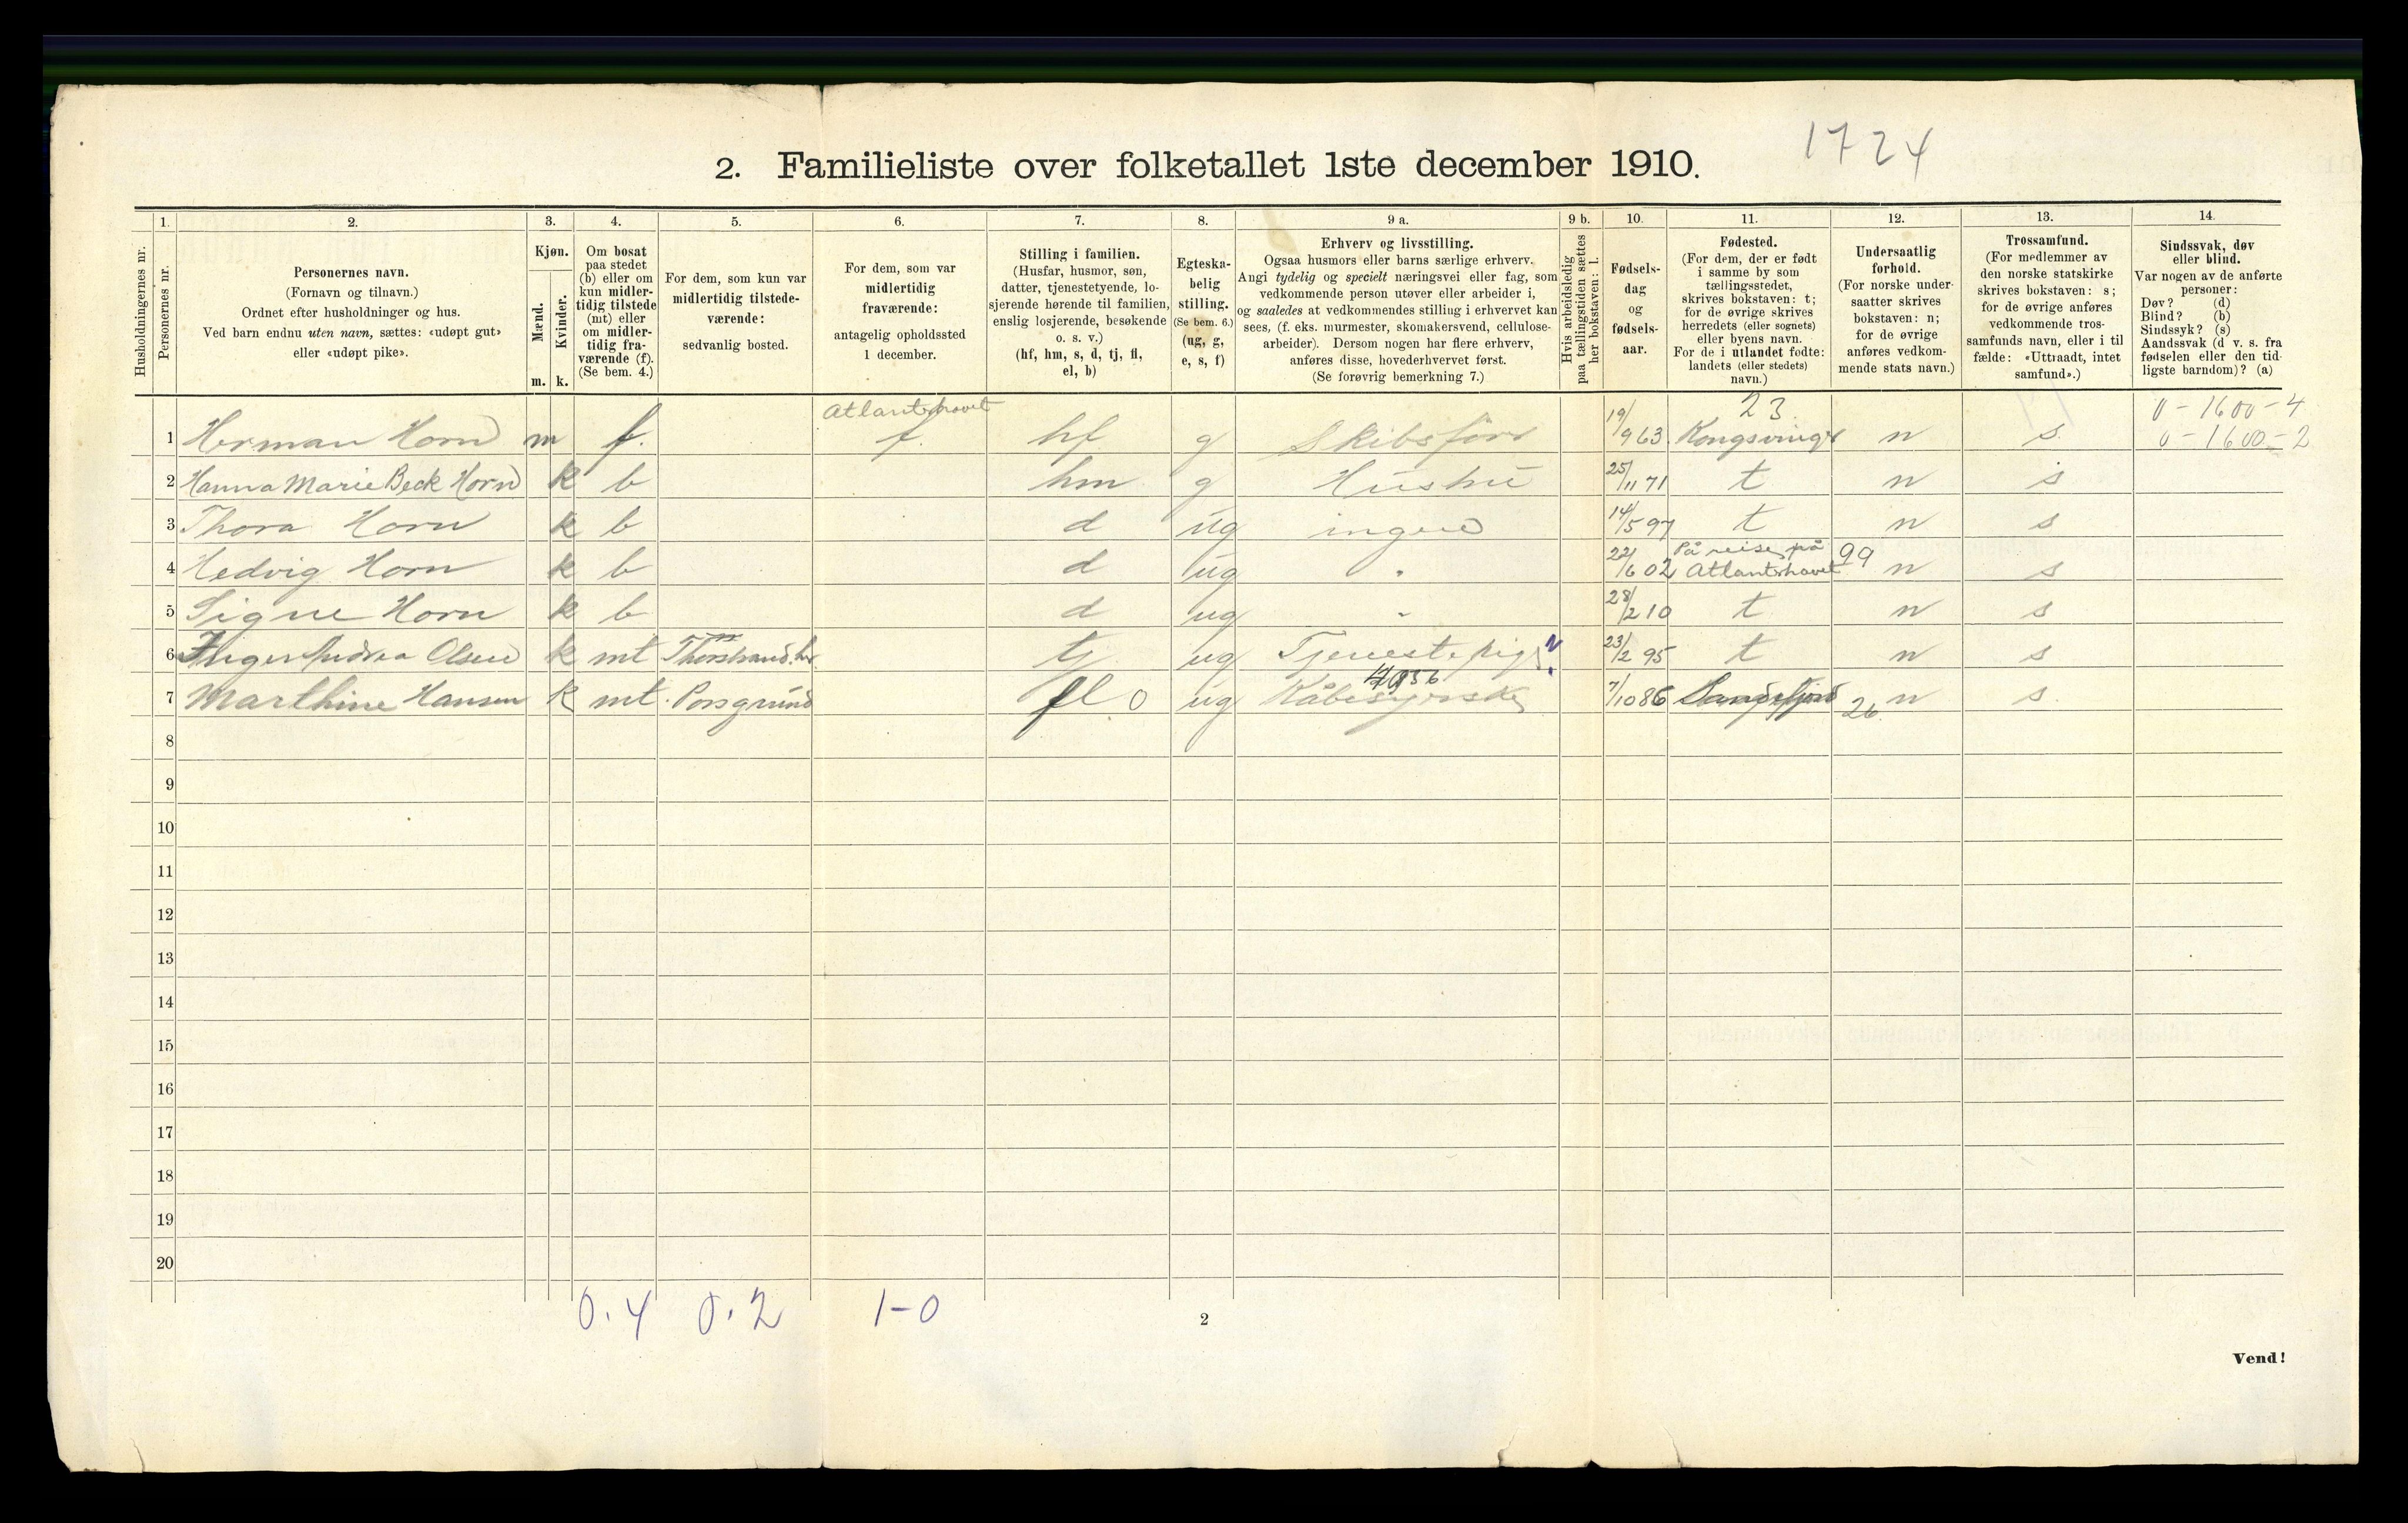 1724
2. Familieliste over folketallet 1ste december 1910.
Husholdningernes nr.
1. Personernes nr.
2. Personernes navn. (Fornavn og tilnavn.) Ordnet efter husholdninger og hus. Ved barn endnu uten navn, sættes: «udøpt gut» eller «udøpt pike».
3. Kjøn. Mænd. m. Kvinder. k.
4. Om bosat paa stedet (b) eller om kun midlertidig tilstede (mt) eller om midlertidig fraværende (f). (Se bem. 4.)
5. For dem, som kun var midlertidig tilstedeværende: sedvanlig bosted.
6. For dem, som var midlertidig fraværende: antagelig opholdssted 1 december.
7. Stilling i familien. (Husfar, husmor, søn, datter, tjenestetyende, losjerende hørende til familien, enslig losjerende, besøkende o. s. v.) (hf, hm, s, d, tj, fl, el, b)
8. Egteskabelig stilling. (Se bem. 6.) (ug, g, e, s, f)
9 a. Erhverv og livsstilling. Ogsaa husmors eller barns særlige erhverv. Angi tydelig og specielt næringsvei eller fag, som vedkommende person utøver eller arbeider i, og saaledes at vedkommendes stilling i erhvervet kan sees, (f. eks. murmester, skomakersvend, cellulosearbeider). Dersom nogen har flere erhverv, anføres disse, hovederhvervet først. (Se forøvrig bemerkning 7.)
9 b. Hvis arbeidsledig paa tællingstiden sættes her bokstaven: l.
10. Fødselsdag og fødselsaar.
11. Fødested. (For dem, der er født i samme by som tællingsstedet, skrives bokstaven: t; for de øvrige skrives herredets (eller sognets) eller byens navn. For de i utlandet fødte: landets (eller stedets) navn.)
12. Undersaatlig forhold. (For norske undersaatter skrives bokstaven: n; for de øvrige anføres vedkommende stats navn.)
13. Trossamfund. (For medlemmer av den norske statskirke skrives bokstaven: s; for de øvrige anføres vedkommende trossamfunds navn, eller i tilfælde: «Uttraadt, intet samfund».)
14. Sindssvak, døv eller blind. Var nogen av de anførte personer: Døv? (d) Blind? (b) Sindssyk? (s) Aandssvak (d v. s. fra fødselen eller den tidligste barndom)? (a)
Atlanterhavet 23. 0 - 1600 - 4
1 Herman Horn m f. f. hf g Skibsfører 19/9 63 Kongsvinger n s. 0 - 1600 - 2
2 Hanna Marie Beck Horn k b hm g Hustru 25/11 71 t n s
3 Thora Horn k b d ug ingen 14/5 97 t n s
4 Hedvig Horn k b d ug " 22/6 02 På reise på Atlanterhavet 99 n s
5 Signe Horn k b d ug " 28/2 10 t n s
6 Inger Andrea Olsen k mt ug Tjenestepige 23/2 95 t n s
tj
7 Marthine Hansen k mt Porsgrund fl. 0 ug Kåbesyerske 7/10 86 Sandefjord 26 n s.
8
9
10
11
12
13
14
15
16
17
18
19
20
0.4 0.2 1-0
2
Vend!